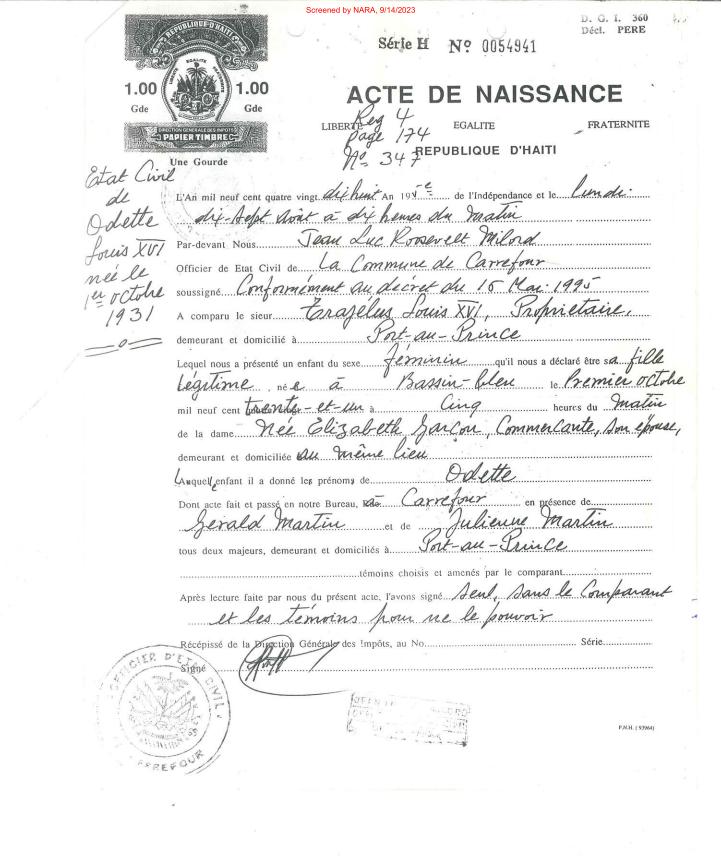 Screened by NARA, 9/14/2023
D. G. I. 360
Décl. PERE
Série H Nº 0054941
REPUBLIQUE D'HAITI
1.00 Gde
1.00 Gde
DIRECTION GENERALE DES IMPOTS
PAPIER TIMBRE
Une Gourde
ACTE DE NAISSANCE
LIBERTE EGALITE FRATERNITE
REPUBLIQUE D'HAITI
Reg 4
page 174
No 347
Etat Civil
de
Odette
Louis XVI
née le
1er octobre
1931
L'An mil neuf cent quatre vingt dix huit An 195e de l'Indépendance et le lundi
dix-sept août à dix heures du Matin
Par-devant Nous Jean Luc Roosevelt Milord
Officier de Etat Civil de La Commune de Carrefour
soussigné Conformément au décret du 15 Mai 1995
A comparu le sieur Erajélus Louis XVI, Propriétaire,
demeurant et domicilié à Port-au-Prince
Lequel nous a présenté un enfant du sexe féminin qu'il nous a déclaré être sa fille
légitime, née à Bassin-bleu le Premier octobre
mil neuf cent trente-et-un à Cinq heures du Matin
de la dame Née Elizabeth Garçon, Commercante, son épouse,
demeurant et domiciliée au même lieu
Laquelle enfant il a donné les prénoms de Odette
Dont acte fait et passé en notre Bureau, à Carrefour en présence de
Gérald Martin et de Julienne Martin
tous deux majeurs, demeurant et domiciliés à Port-au-Prince
témoins choisis et amenés par le comparant
Après lecture faite par nous du présent acte, l'avons signé seul, sans le Comparant
et les témoins pour ne le pouvoir
Récépissé de la Direction Générale des Impôts, au No. Série
Signé
OFFICIER D'ETAT CIVIL
CARREFOUR
P.N.H. (93964)